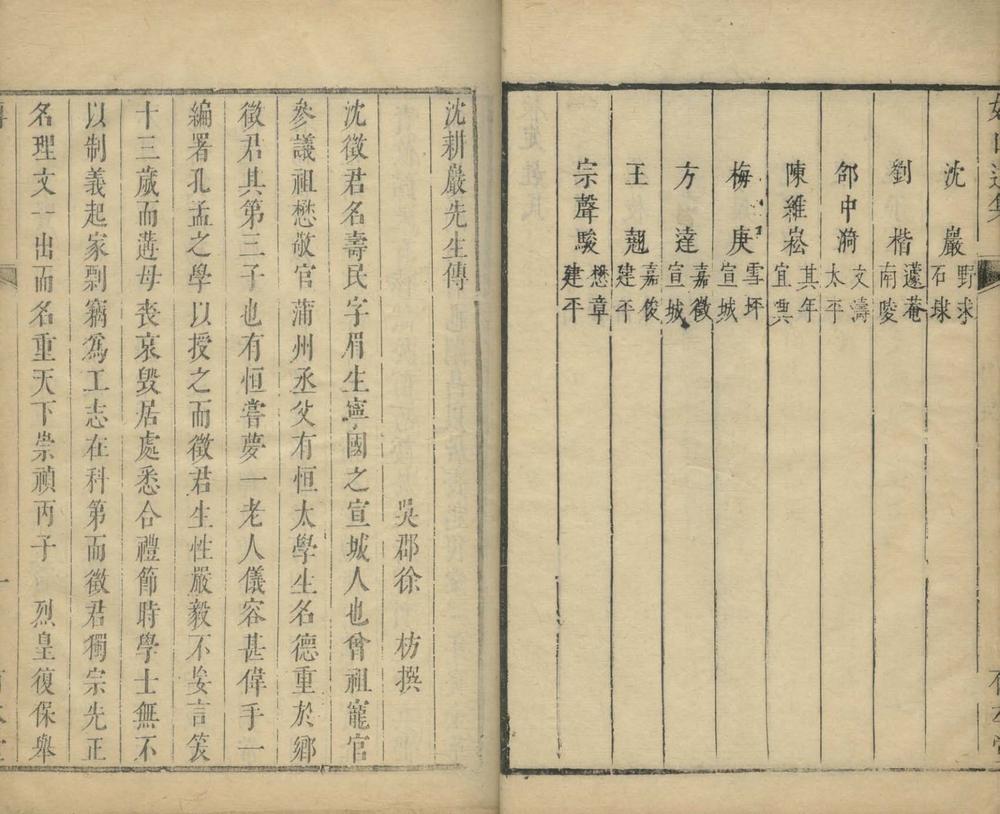 沈　巖 野求 石埭
劉　楷 蘧菴 南陵
邵中漪 文濤 太平
陳維崧 其年 宜興
梅　庚 雪坪 宣城
方　逹 嘉徵 宣城
王　翹 嘉俊 建平
宗聲駿 懋章 建平
沈耕巖先生傳
吳郡徐　枋撰
沈徵君名壽民字眉生寧國之宣城人也曾祖寵官
參議祖懋敬官蒲州丞父有恒太學生名德重於鄉
徵君其第三子也有恒嘗夢一老人儀容甚偉手一
編署孔孟之學以授之而徵君生性嚴毅不妄言笑
十三歲而遘母喪哀毀居處悉合禮節時學士無不
以制義起家剽竊為工志在科第而徵君獨宗先正
名理文一出而名重天下崇禎丙子　烈皇復保舉